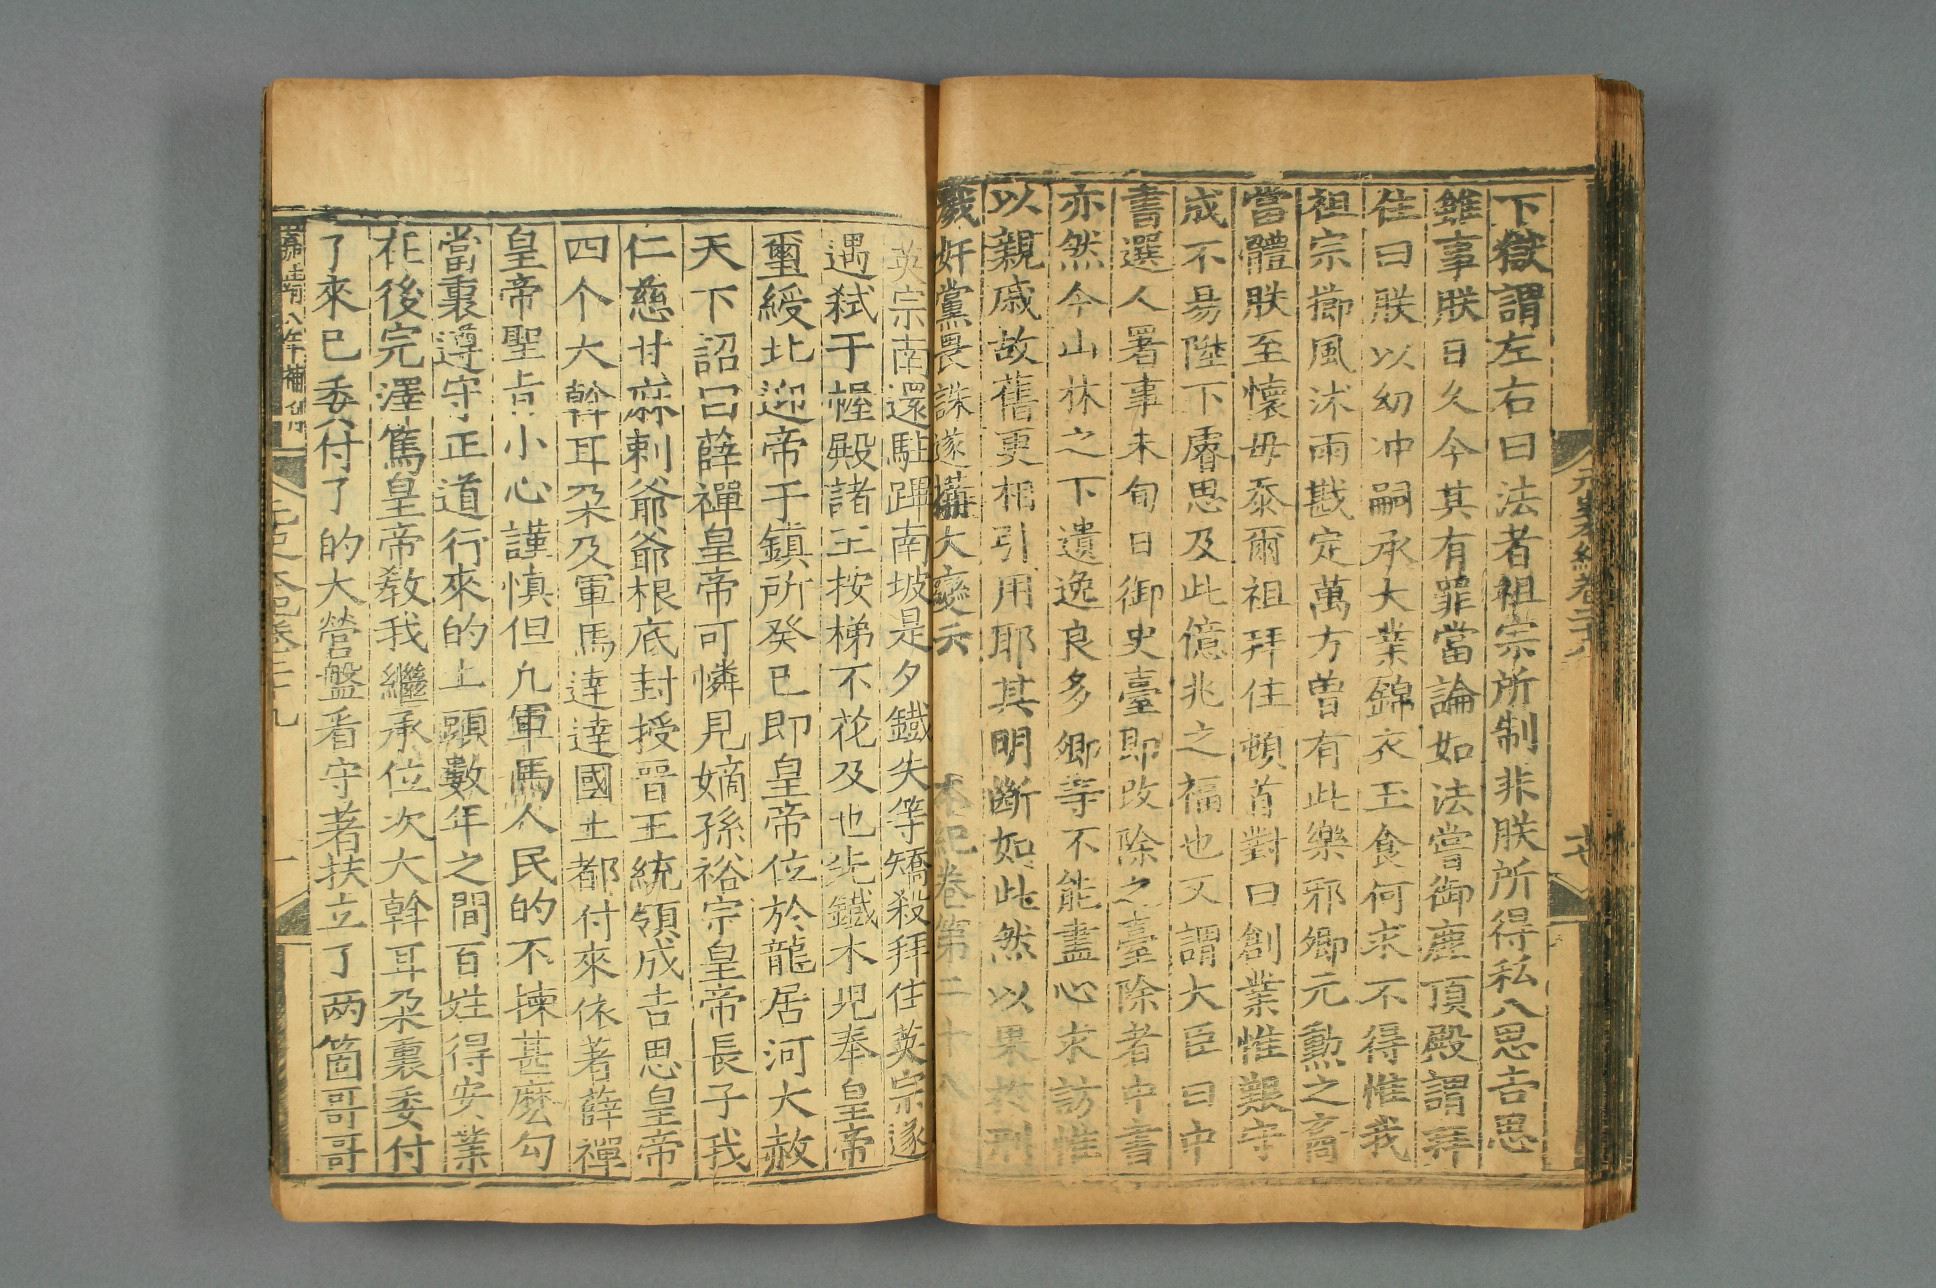 下獄謂左右曰法者祖宗所制非朕所得私八思吉思
雖事朕日久今其有罪當論如法嘗御鹿頂殿謂拜
住曰朕以幼冲嗣承大業錦衣玉食何求不得惟我
祖宗櫛風沐雨戡定萬方曽有此樂邪卿元勲之裔
當體朕至懷毋忝爾祖拜住頓首對曰創業惟艱守
成不易陛下睿思及此億兆之福也又謂大臣曰中
書選人署事未旬日御史臺即改除之臺除者中書
亦然今山林之下遺逸良多卿等不能盡心求訪惟
以親戚故舊更相引用耶其明斷如此然以果於刑
戮奸黨畏誅遂搆大變云
本紀卷第二十八
元史本紀卷二十八
十七
英宗南還駐蹕南坡是夕鐵失等矯殺拜住英宗遂
遇弒于幄殿諸王按梯不花及也先鐵木児奉皇帝
璽綬北迎帝于鎮所癸巳即皇帝位於龍居河大赦
天下詔曰薛禪皇帝可憐見嫡孫裕宗皇帝長子我
仁慈甘麻剌爺爺根底封授晋王統領成吉思皇帝
四个大斡耳朶及軍馬達達國土都付來依著薛禪
皇帝聖旨小心謹慎但凡軍馬人民的不揀甚麽勾
當裏遵守正道行來的上頭數年之間百姓得安業
在後完澤篤皇帝敎我繼承位次大斡耳朶裏委付
了來已委付了的大營盤看守著扶立了两箇哥哥
嘉靖八年補刊
元史本紀卷二十九
一